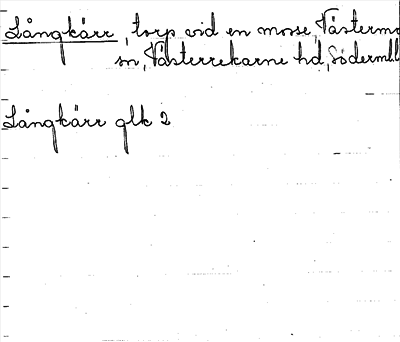 Långkärr, torp vid en mosse, Västermo
sn, Västerrekarne hd, Söderml.
Långkärr glk 2